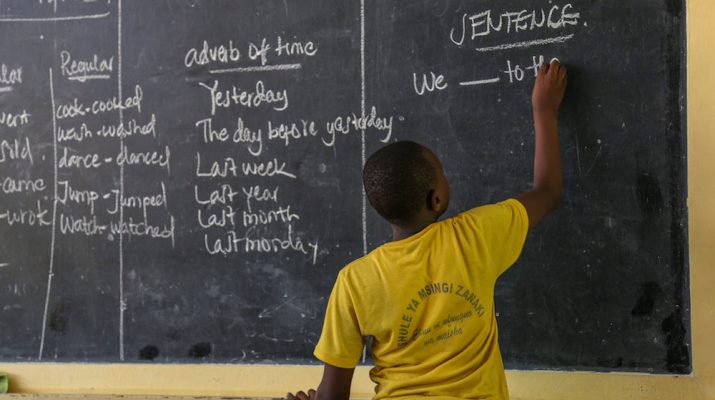 Regular
cook-cooked
wash-washed
dance-danced
Jump-Jumped
Watch-watched
adverb of time
Yesterday
The day before yesterday
Last week
Last year
last month
last monday
SENTENCE.
We __ to the
SHULE YA MSINGI ZANAKI
wa maisha